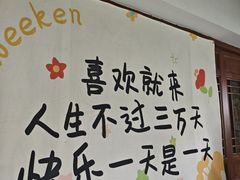 weeken
喜欢就来
人生不过三万天
快乐一天是一天